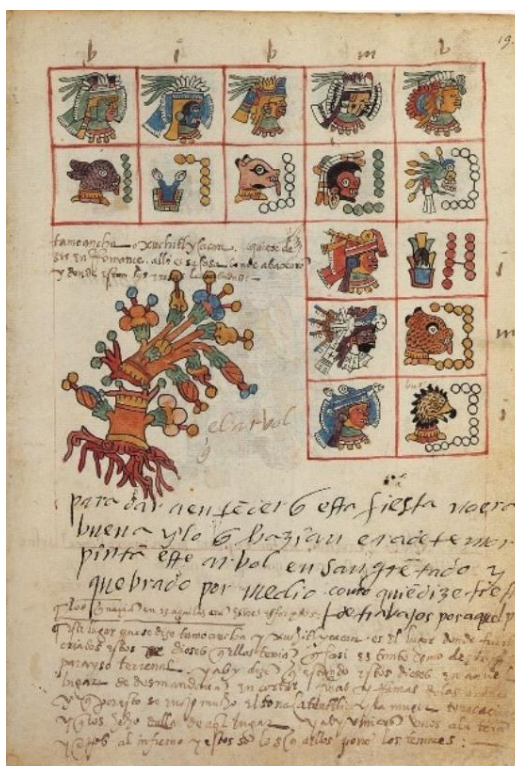 19.
b i b m b
tamoancha o xuchitlycacan. quiere de
zir en romance alli es su casa donde abaxaro
y donde estan sus
j
m
el arbol
j
para dar a entēder q esta fiesta no era
buena y lo q hazian era de temor
pintā este arbol ensangrētado y
quebrado por medio como quiē dize fies
de trabajos por aquel p
este lugar que se dize tamoancha y xuchitlycacan es el lugar donde fuerō
criados estos dioses q ellos tenia q casi es tanto como dezir el
parayso terrenal y asy dizē q estando estos dioses en aquel
lugar se desmandavan en cortar rosas y ramas de los arboles
y q por esto se enojo mucho el y la muger
y q los echo dalla de aql lugar y asy vinierō unos a la tierra
y otros al infierno y estos sō los q a ellos ponē los temores: